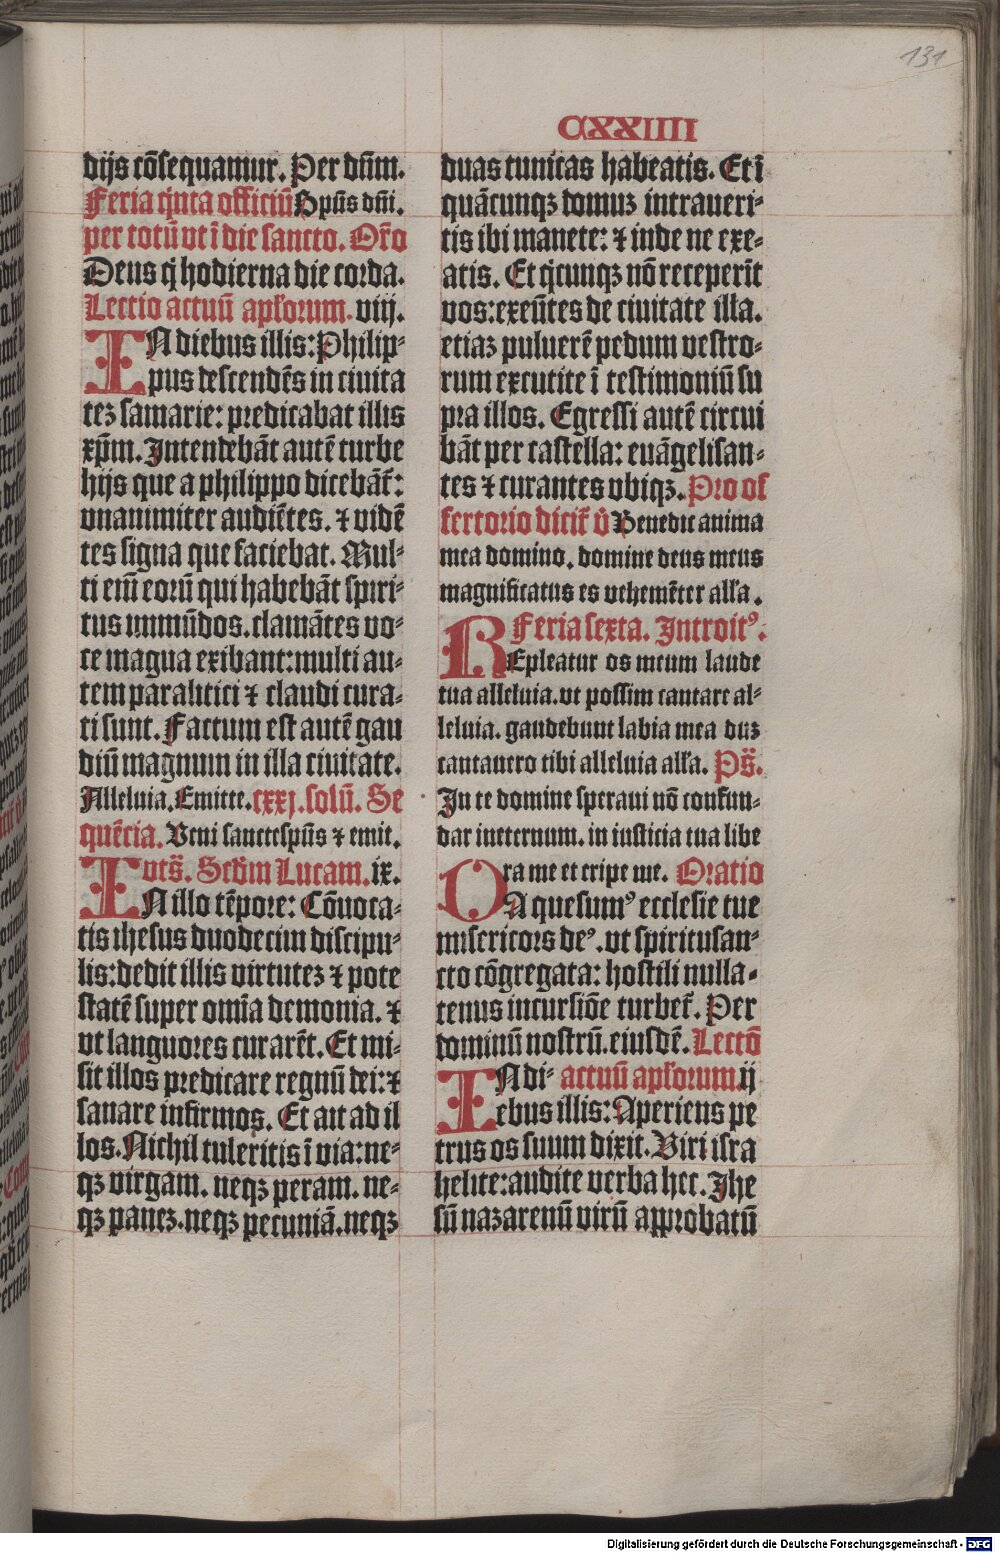 131
CXXIIII
dijs cōsequamur. Per dn̄m.
Feria q̇nta officiū Spūs dn̄i.
per totū vt ī die sancto. Or̄o
Deus q̇ hodierna die corda.
Lectio actuū apl'orum. viij.
IN diebus illis: Philip-
pus descendēs in ciuita
tez samarie: predicabat illis
xp̄m. Intendebāt autē turbe
hijs que a philippo dicebāt̄:
vnanimiter audiētes. ⁊ vidē
tes signa que faciebat. Mul-
ti em̄ eorū qui habebāt spiri-
tus immūdos. clamātes vo-
ce magna exibant: multi au-
tem paralitici ⁊ claudi cura-
ti sunt. Factum est autē gau
diū magnum in illa ciuitate.
Alleluia. Emitte. cxxj. solū. Se
quēcia. Veni sanctespūs ⁊ emit.
vts̄. Scd̄m Lucam. ix.
IN illo tēpore: Cōuoca-
tis ihesus duodecim discipu-
lis: dedit illis virtutez ⁊ pote
statē super om̄ia demonia. ⁊
vt languores curarēt. Et mi-
sit illos predicare regnū dei: ⁊
sanare infirmos. Et ait ad il
los. Nichil tuleritis ī via: ne-
qz virgam. neqz peram. ne-
qz panez. neqz pecuniā. neqz
duas tunicas habeatis. Et ī
quācunqz domuz intraueri-
tis ibi manete: ⁊ inde ne exe-
atis. Et q̇cunqz nō receperīt
vos: exeūtes de ciuitate illa.
etiaz puluerē pedum vestro-
rum excutite ī testimoniū su
pra illos. Egressi autē circui
bāt per castella: euāgelisan-
tes ⁊ curantes vbiqz. Pro of
fertorio dicit̄ v̄ Benedic anima
mea domino. domine deus meus
magnificatus es vehemēter all'a.
Feria sexta. Introitꝰ.
REpleatur os meum laude
tua alleluia. vt possim cantare al-
leluia. gaudebunt labia mea duz
cantauero tibi alleluia all'a. Ps̄.
In te domine speraui nō confun-
dar ineternum. in iusticia tua libe
ra me et eripe me. Oratio
DA quesumꝰ ecclesie tue
misericors deꝰ. vt spiritusan-
cto cōgregata: hostili nulla-
tenus incursiōe turbet̄. Per
dominū nostrū. eiusdē. Lectō
IN di- actuū apl'orum. ij
ebus illis: Aperiens pe
trus os suum dixit. Viri isra
helite: audite verba hec. Ihe
sū nazarenū virū approbatū
Digitalisierung gefördert durch die Deutsche Forschungsgemeinschaft - DFG